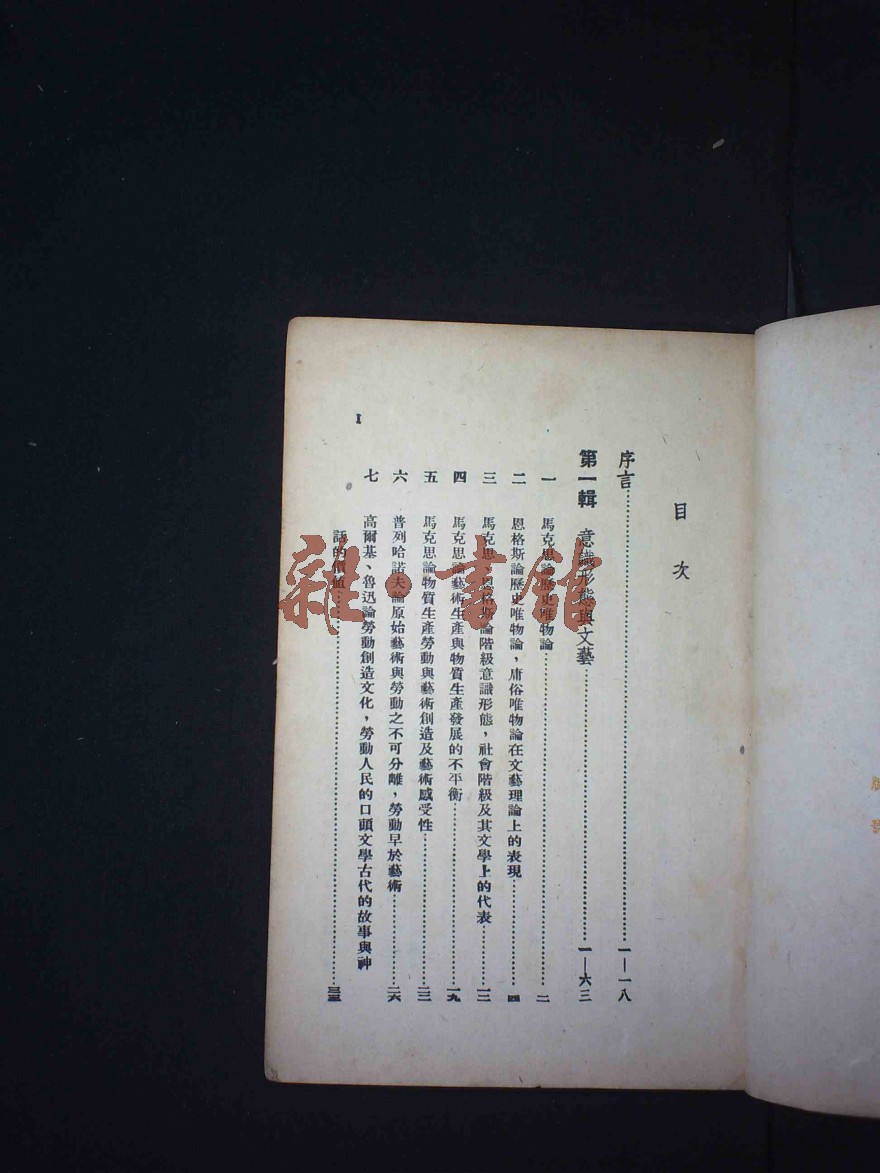 目次
序言……一—一八
第一輯 意識形態與文藝……一—六三
一 馬克思論歷史唯物論……二
二 恩格斯論歷史唯物論，庸俗唯物論在文藝理論上的表現……四
三 馬克思、恩格斯論階級意識形態，社會階級及其文學上的代表……一二
四 馬克思論藝術生產與物質生產發展的不平衡……一九
五 馬克思論物質生產勞動與藝術創造及藝術感受性……二二
六 普列哈諾夫論原始藝術與勞動之不可分離，勞動早於藝術……二六
七 高爾基、魯迅論勞動創造文化，勞動人民的口頭文學古代的故事與神
話的價值……三三
I
雜·書館